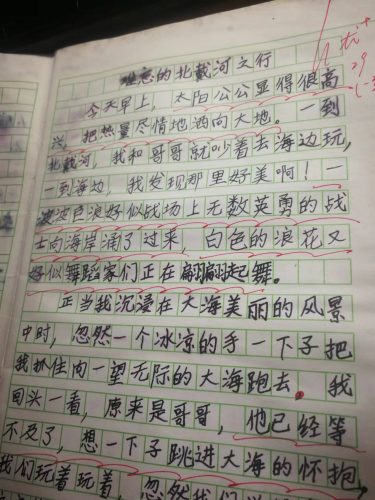 难忘的北戴河之行
优+
29
今天早上，太阳公公显得很高
兴，把热量尽情地洒向大地。一到
北戴河，我和哥哥就吵着去海边玩，
一到海边，我发现那里好美啊！一
波波巨浪好似战场上无数英勇的战
士向海岸涌了过来，白色的浪花又
好似舞蹈家们正在翩翩起舞。
正当我沉浸在大海美丽的风景
中时，忽然一个冰凉的手一下子把
我抓住向一望无际的大海跑去。我
回头一看，原来是哥哥，他已经等
不及了，想一下子跳进大海的怀抱，
我们玩着玩着，忽然我们